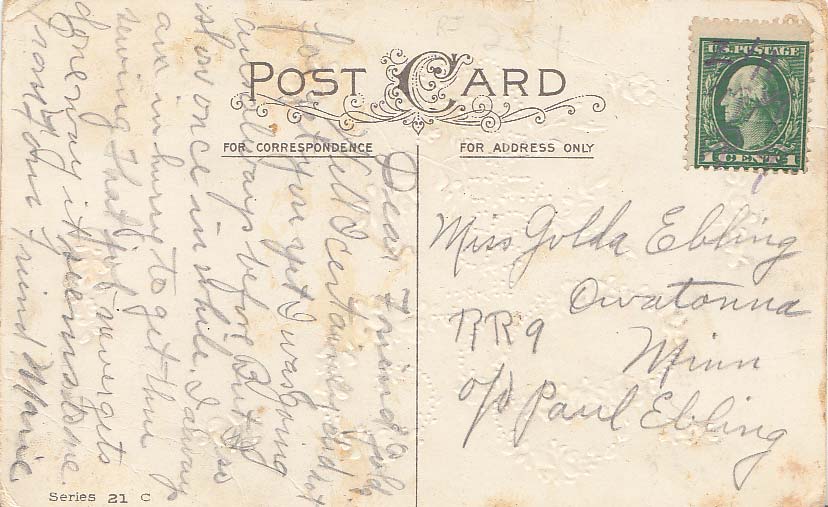 POST CARD
FOR CORRESPONDENCE
FOR ADDRESS ONLY
U.S. POSTAGE
1 CENT 1
Dear Friend Golda
Well I certainly did not
forget you yet I was going
always before But I
slow once in while. I always
are in hurry to get thru
sewing that just never gets
done way it seems to me.
your friend Marie
Miss Golda Ebling
Owatonna
RR 9
Minn
c/o Paul Ebling
Series 21 C